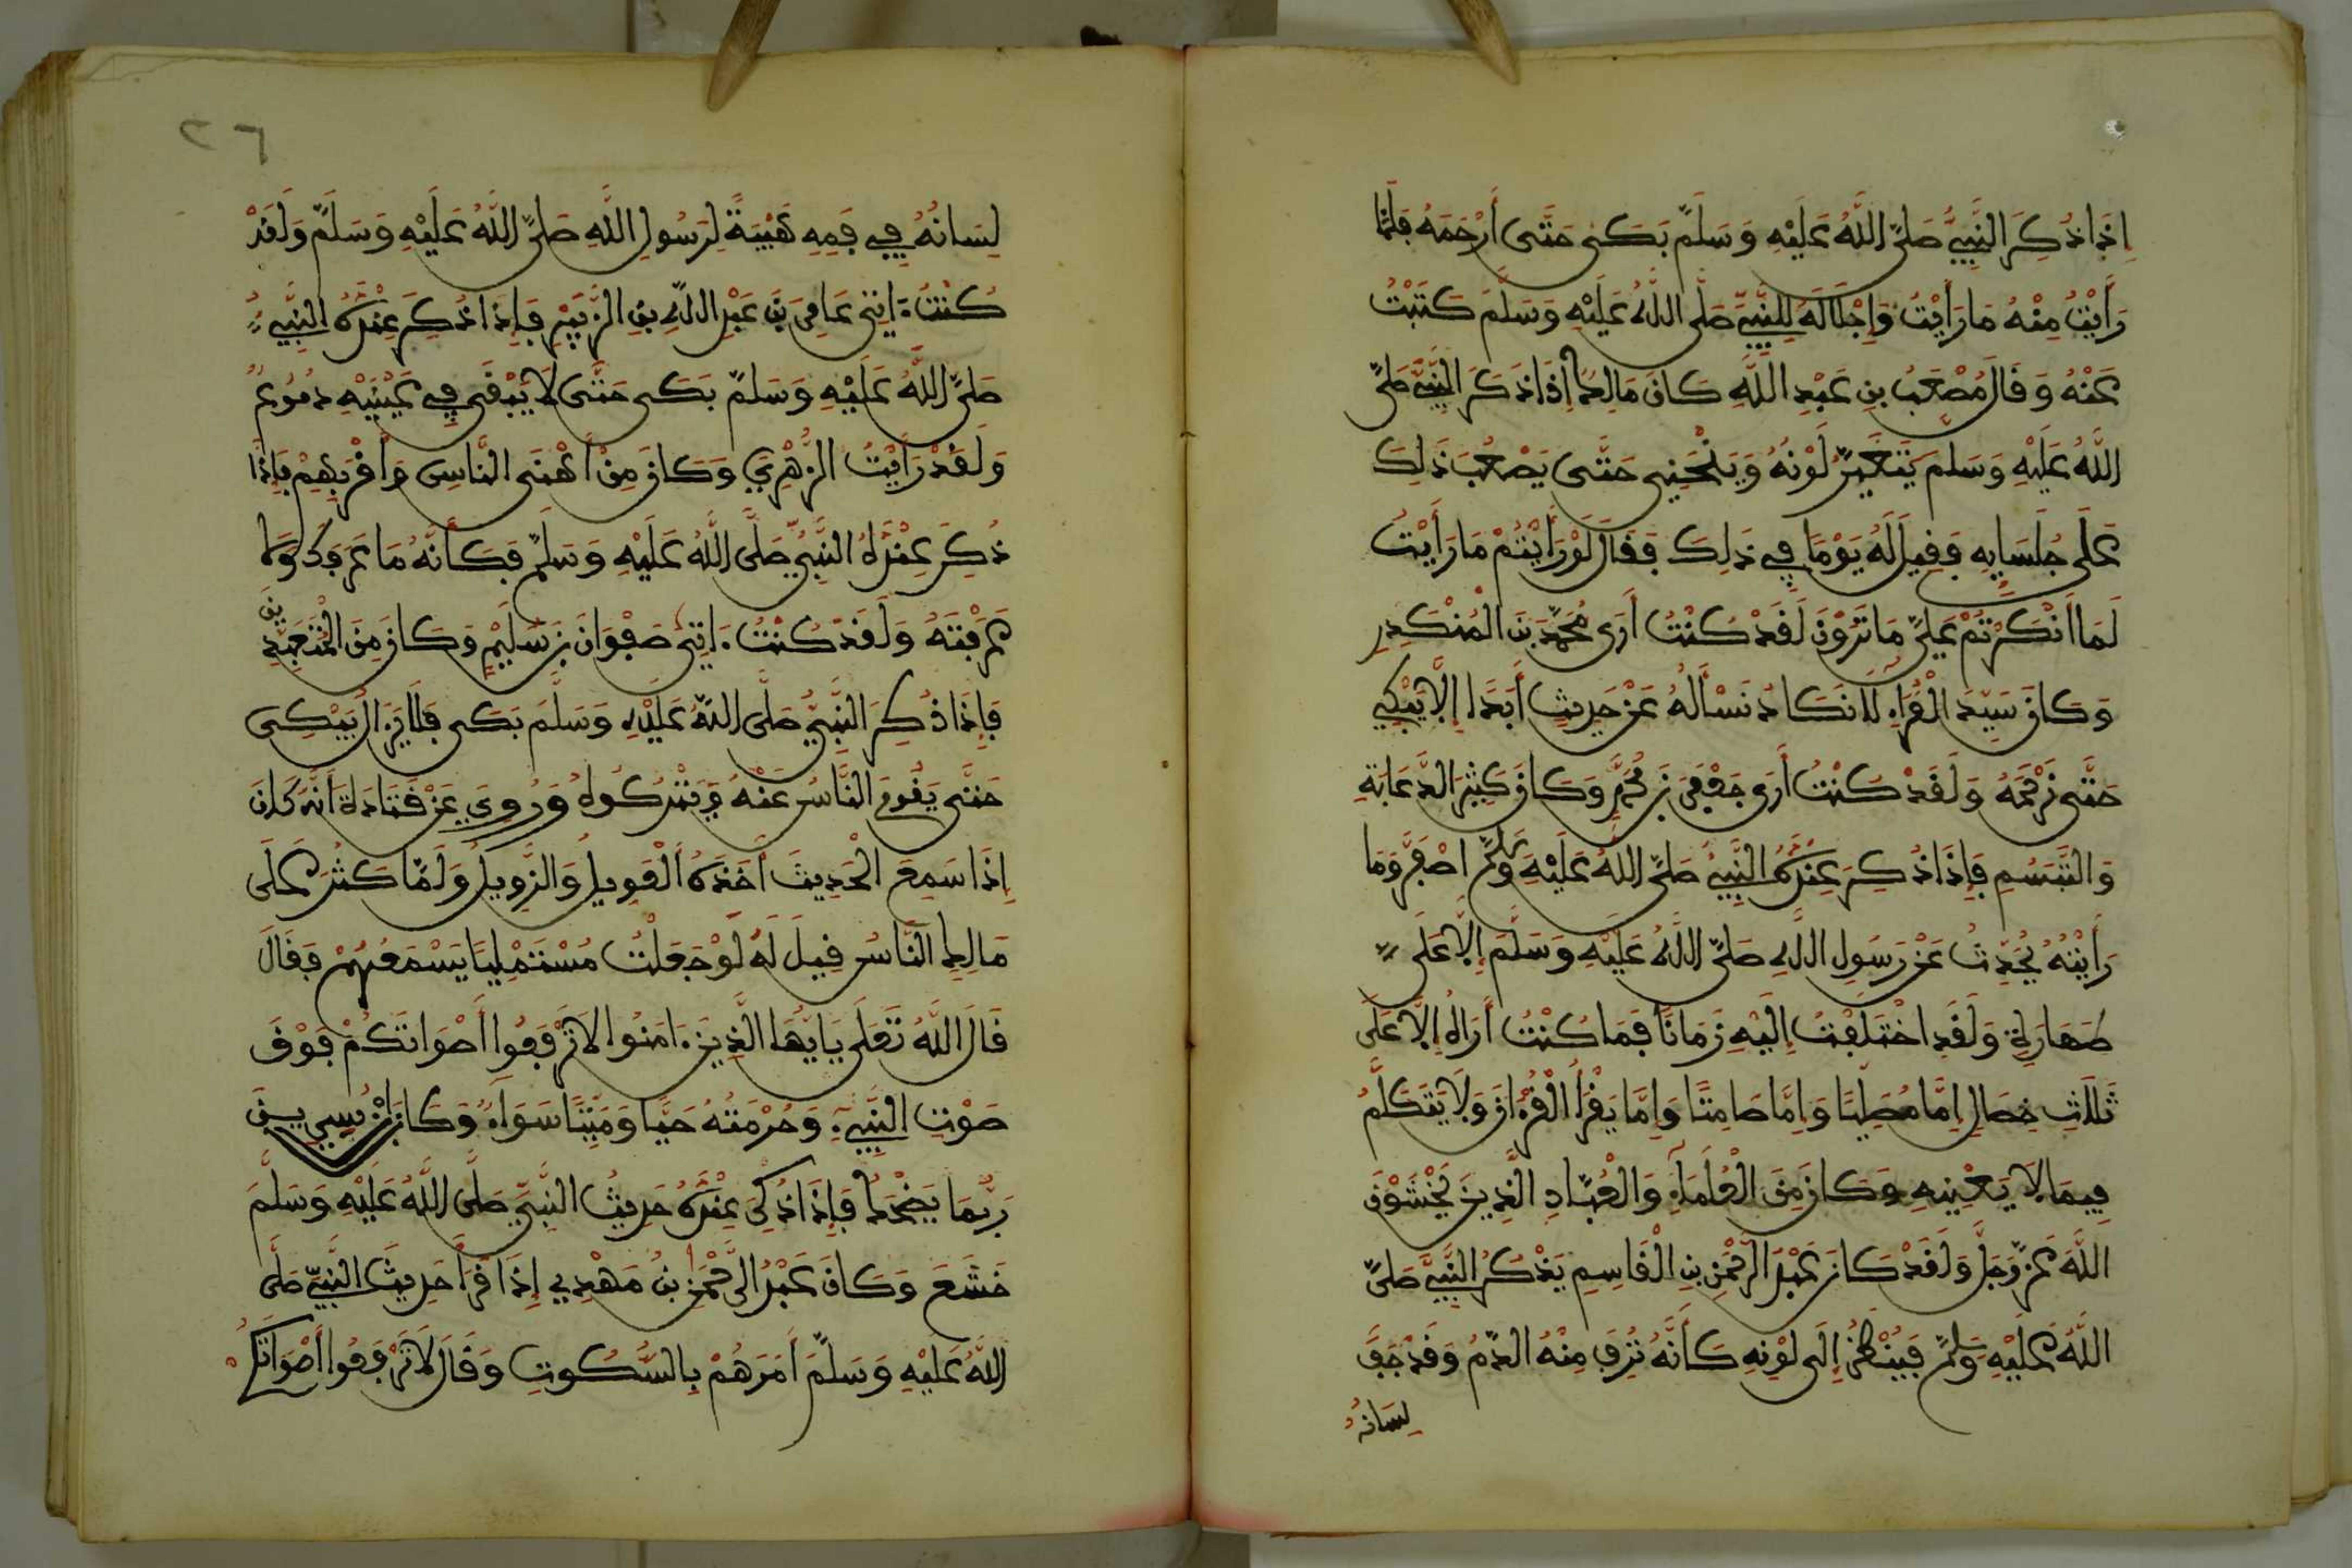 إِذَا ذُكِرَ النَّبِيُّ صَلَّى اللَّهُ عَلَيْهِ وَسَلَّمَ بَكَى حَتَّى أَرْحَمَهُ فَلَمَّا
رَأَيْتُ مِنْهُ مَا رَأَيْتُ وَإِجْلَالَهُ لِلنَّبِيِّ صَلَّى اللَّهُ عَلَيْهِ وَسَلَّمَ كَتَبْتُ
عَنْهُ وَقَالَ مُصْعَبُ بْنِ عَبْدِ اللَّهِ كَانَ مَالِكٌ إِذَا ذَكَرَ النَّبِيَّ صَلَّى
اللَّهُ عَلَيْهِ وَسَلَّمَ يَتَغَيَّرُ لَوْنُهُ وَيَنْحَنِي حَتَّى يَصْعُبَ ذَلِكَ
عَلَى جُلَسَايِهِ فَقِيلَ لَهُ يَوْمًا فِي ذَلِكَ فَقَالَ لَوْ رَأَيْتُمْ مَا رَأَيْتُ
لَمَا أَنْكَرْتُمْ عَلَيَّ مَا تَرَوْنَ لَقَدْ كُنْتُ أَرَى مُحَمَّدَ بْنَ الْمُنْكَدِرِ
وَكَانَ سَيِّدَ الْقُرَّاءِ لَا نَكَادُ نَسْأَلُهُ عَنْ حَدِيثٍ أَبَدًا إِلَّا يَبْكِي
حَتَّى نَرْحَمَهُ وَلَقَدْ كُنْتُ أَرَى جَعْفَرَ بْنَ مُحَمَّدٍ وَكَانَ كَثِيرَ الدُّعَابَةِ
وَالتَّبَسُّمِ فَإِذَا ذُكِرَ عِنْدَهُ النَّبِيُّ صَلَّى اللَّهُ عَلَيْهِ وَسَلَّمَ اصْفَرَّ وَمَا
رَأَيْتُهُ يُحَدِّثُ عَنْ رَسُولِ اللَّهِ صَلَّى اللَّهُ عَلَيْهِ وَسَلَّمَ إِلَّا عَلَى
طَهَارَةٍ وَلَقَدِ اخْتَلَفْتُ إِلَيْهِ زَمَانًا فَمَا كُنْتُ أَرَاهُ إِلَّا عَلَى
ثَلَاثِ خِصَالٍ إِمَّا مُصَلِّيًا وَإِمَّا صَامِتًا وَإِمَّا يَقْرَأُ الْقُرْآنَ وَلَا يَتَكَلَّمُ
فِيمَا لَا يَعْنِيهِ وَكَانَ مِنَ الْعُلَمَاءِ وَالْعُبَّادِ الَّذِينَ يَخْشَوْنَ
اللَّهَ عَزَّ وَجَلَّ وَلَقَدْ كَانَ عَبْدُ الرَّحْمَنِ بْنِ الْقَاسِمِ يَذْكُرُ النَّبِيَّ صَلَّى
اللَّهُ عَلَيْهِ وَسَلَّمَ فَيُنْظَرُ إِلَى لَوْنِهِ كَأَنَّهُ نُزِفَ مِنْهُ الدَّمُ وَقَدْ جَفَّ
لِسَانُهُ
٢٦
لِسَانُهُ فِي فَمِهِ هَيْبَةً لِرَسُولِ اللَّهِ صَلَّى اللَّهُ عَلَيْهِ وَسَلَّمَ وَلَقَدْ
كُنْتُ ءَاتِي عَامِرَ بْنَ عَبْدِ اللَّهِ بْنِ الزُّبَيْرِ فَإِذَا ذُكِرَ عِنْدَهُ النَّبِيُّ
صَلَّى اللَّهُ عَلَيْهِ وَسَلَّمَ بَكَى حَتَّى لَا يَبْقَى فِي عَيْنَيْهِ دُمُوعٌ
وَلَقَدْ رَأَيْتُ الزُّهْرِيَّ وَكَانَ مِنْ أَهْنَى النَّاسِ وَأَقْرَبِهِمْ فَإِذَا
ذُكِرَ عِنْدَهُ النَّبِيُّ صَلَّى اللَّهُ عَلَيْهِ وَسَلَّمَ فَكَأَنَّهُ مَا عَرَفَكَ وَلَا
عَرَفْتَهُ وَلَقَدْ كُنْتُ ءَاتِي صَفْوَانَ بْنَ سُلَيْمٍ وَكَانَ مِنَ الْمُتَعَبِّدِينَ
فَإِذَا ذُكِرَ النَّبِيُّ صَلَّى اللَّهُ عَلَيْهِ وَسَلَّمَ بَكَى فَلَا يَزَالُ يَبْكِي
حَتَّى يَقُومَ النَّاسُ عَنْهُ وَيَتْرُكُوهُ وَرُوِيَ عَنْ قَتَادَةَ أَنَّهُ كَانَ
إِذَا سَمِعَ الْحَدِيثَ أَخَذَهُ الْعَوِيلُ وَالزَّوِيلُ وَلَمَّا كَثُرَ عَلَى
مَالِكٍ النَّاسُ قِيلَ لَهُ لَوْ جَعَلْتَ مُسْتَمْلِيًا يَسْمَعُهُمْ فَقَالَ
قَالَ اللَّهُ تَعَلَى يَايُّهَا الَّذِينَ ءَامَنُوا لَا تَرْفَعُوا أَصْوَاتَكُمْ فَوْقَ
صَوْتِ النَّبِيِّ وَحُرْمَتُهُ حَيًّا وَمَيِّتًا سَوَاءٌ وَكَانَ ابْنُ سِيرِينَ
رُبَّمَا يَضْحَكُ فَإِذَا ذُكِرَ عِنْدَهُ حَدِيثُ النَّبِيِّ صَلَّى اللَّهُ عَلَيْهِ وَسَلَّمَ
خَشَعَ وَكَانَ عَبْدُ الرَّحْمَنِ بْنُ مَهْدِي إِذَا قَرَأَ حَدِيثَ النَّبِيِّ صَلَّى
اللَّهُ عَلَيْهِ وَسَلَّمَ أَمَرَهُمْ بِالسُّكُوتِ وَقَالَ لَا تَرْفَعُوا أَصْوَاتَكُمْ